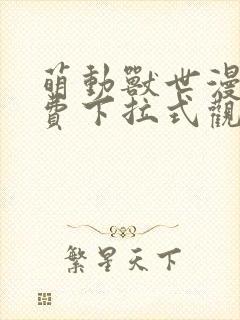 萌動獸世漫
費下拉式觀
繁星天下